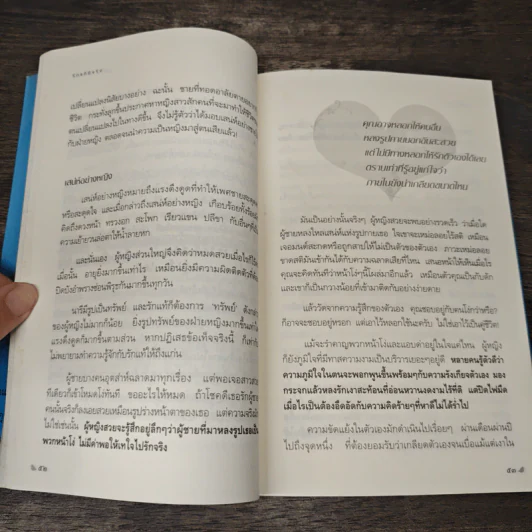 เปลี่ยนแปลงนิสัยบางอย่าง ฉะนั้น ชายที่ทอดอาลัยตายอยาก
ชีวิต กระทั่งลุกขึ้นประกาศหาหญิงสาวสักคนที่จะมาทำให้ชีวิต
ตนเปลี่ยนแปลงไปในทางดีขึ้น จึงไม่รู้ตัวว่าได้มอบเสน่ห์อย่าง
กับฝ่ายหญิง ตลอดจนนำความเป็นหญิงมาสู่ตนเสียแล้ว!
เสน่ห์อย่างหญิง
เสน่ห์อย่างหญิงหมายถึงแรงดึงดูดที่ทำให้เพศชาย
หรือสะดุดใจ และเมื่อกล่าวถึงเสน่ห์อย่างหญิง เกือบร้อยทั้งร้อย
คิดถึงดวงหน้า ทรวงอก สะโพก เรียวแขน ปลีขา กับอื่นๆ
ความเย้ายวนลอดไว้น้ำลายหก
และนั่นเอง ผู้หญิงส่วนใหญ่จึงคิดว่าหมดสวยเมื่อไหร่
เมื่อนั้น อายุยิ่งมากขึ้นเท่าไร เหมือนยิ่งมีความผิดติดตัว
ปิดบังอำพรางซ่อนพิรุธกันมากขึ้นทุกวัน
นารีมีรูปเป็นทรัพย์ และรักแท้ก็ต้องการ 'ทรัพย์'
ของผู้หญิงไม่มากก็น้อย ยิ่งรูปทรัพย์ของฝ่ายหญิงมากขึ้น
แรงดึงดูดก็มากขึ้นตามส่วน หากปฏิเสธข้อเท็จจริงนี้ ก็
ไม่พยายามทำความรู้จักกับรักแท้ให้ถึงแก่น
ผู้ชายบางคนอุตส่าห์ฉลาดมาทุกเรื่อง แต่พอเจอสาวสวย
ทีเดียวก็เข้าโหมดโง่ทันที ขออะไรให้หมด ถ้าโชคดีเธอรัก
คนนั้นจริงก็ลอยสวยเหมือนรูปร่างหน้าตาของเธอ แต่ความจริง
ไม่ใช่เช่นนั้น ผู้หญิงสวยจะรู้สึกอยู่ลึกๆว่าผู้ชายที่มาหลงรูปเธอ
พวกหน้าโง่ ไม่มีค่าพอให้เทใจไปรักจริง
๕๒
คุณอาจหลอกให้คนอื่น
หลงรูปกายนอกอันสะสวย
แต่ไม่มีทางหลอกให้รักตัวเองได้เลย
ตราบเท่าที่รู้อยู่แก่ใจว่า
ภายในยังน่าเกลียดขนาดไหน
มันเป็นอย่างนั้นจริงๆ ผู้หญิงสวยจะพบอย่างรวดเร็ว ว่าเมื่อใด
ผู้ชายหลงใหลเสน่ห์แห่งรูปกายเธอ ใจเขาจะเหม่อลอยไร้สติ เหมือน
เจอมนต์สะกดหรือถูกสายให้ไม่เป็นตัวของตัวเอง ภาวะเหม่อลอย
ขาดสติมันเข้ากันได้กับความฉลาดเสียที่ไหน เสนอหน้าให้เห็นเมื่อไร
คุณจะคิดทันทีว่าหน้าโง่ๆนี้โผล่มาอีกแล้ว เหมือนตัวคุณเป็นกับดัก
และเขาก็เป็นกวางน้อยที่เข้ามาติดกับอย่างง่ายดาย
แล้ววัดจากความรู้สึกของตัวเอง คุณชอบอยู่กับคนโง่กว่าหรือ?
ก็อาจจะชอบอยู่หรอก แต่เอาไว้หลอกใช้นะครับ ไม่ใช่เอาไว้เป็นคู่ชีวิต!
แม้จะรำคาญพวกหน้าโง่และแอบด่าอยู่ในใจแค่ไหน ผู้หญิง
ก็ยังภูมิใจที่มีทาสความงามเป็นบริวารเยอะๆอยู่ดี หลายคนรู้ตัวดีว่า
ความภูมิใจในตนจะพอกพูนขึ้นพร้อมๆกับความรังเกียจตัวเอง มอง
กระจกแล้วหลงรักเงาสะท้อนที่อ่อนหวานงดงามไร้ที่ติ แต่ปิดไฟมืด
เมื่อไรเป็นต้องอึดอัดกับความคิดร้ายๆที่หาดีไม่ได้ร่ำไป
ความขัดแย้งในตัวเองมักดำเนินไปเรื่อยๆ ผ่านเดือนผ่านปี
ไปถึงจุดหนึ่ง ที่ต้องยอมรับว่าเกลียดตัวเองจนเบื่อแม้แต่เงาใน
๕๓